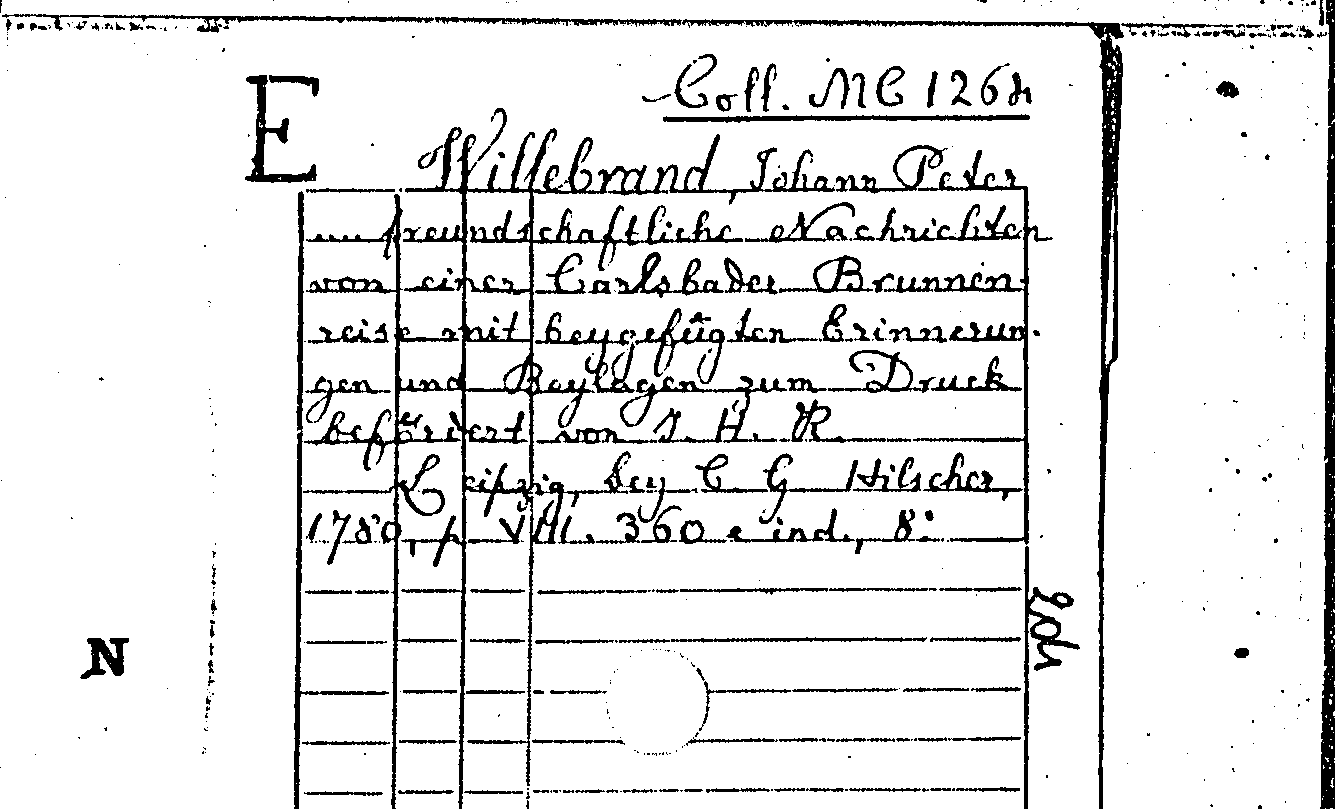 E
Coll. MC 126
Willebrand, Johann Peter
.... freundschaftliche Nachrichten
von einer Carlsbader Brunnen-
reise mit beygefügten Erinnerun-
gen und Beylagen zum Druck
befördert von J. H. R.
Leipzig, bey C G Hilscher,
1780, p. VIII. 360 e ind., 8:
N